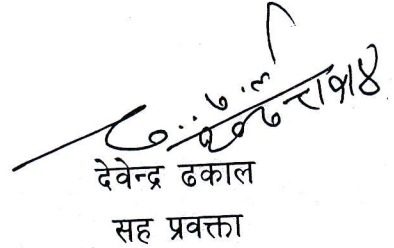 देवेन्द्र ढकाल
सह प्रवक्ता